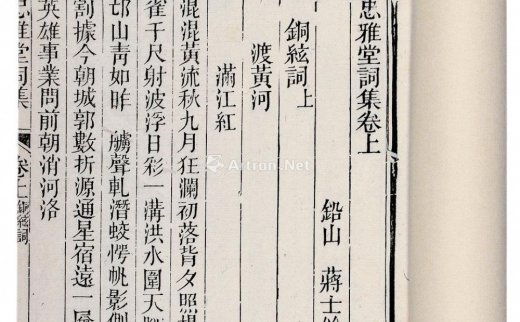 忠雅堂詞集卷上
鉛山 蔣士
銅絃詞上
渡黃河
滿江紅
混混黃流秋九月狂瀾初落背夕照
雀千尺射波浮日彩一溝洪水圍天
邙山青如昨 艣聲軋潛蛟愕帆影
割據今朝城郭數折源通星宿遠一
英雄事業問前朝消河洛
忠雅堂詞集 卷上 銅絃詞
Artron.Net